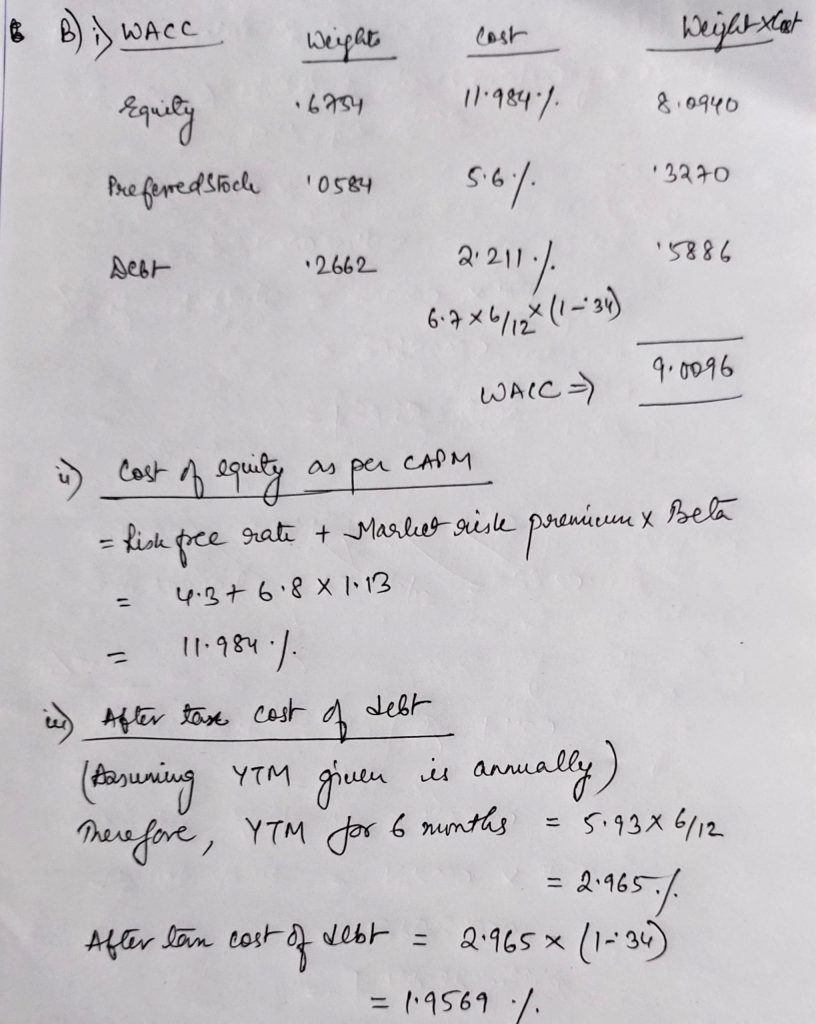 B) i) WACC Weights Cost Weight x Cost
Equity .6754 11.984 % 8.0940
Preferred Stock .0584 5.6 % .3270
Debt .2662 2.211 % .5886
6.7 x 6/12 x (1-.34)
WACC => 9.0096
ii) Cost of equity as per CAPM
= Risk free rate + Market risk premium x Beta
= 4.3 + 6.8 x 1.13
= 11.984 %
iii) After tax cost of debt
(Assuming YTM given is annually)
Therefore, YTM for 6 months = 5.93 x 6/12
= 2.965 %
After tax cost of debt = 2.965 x (1-.34)
= 1.9569 %